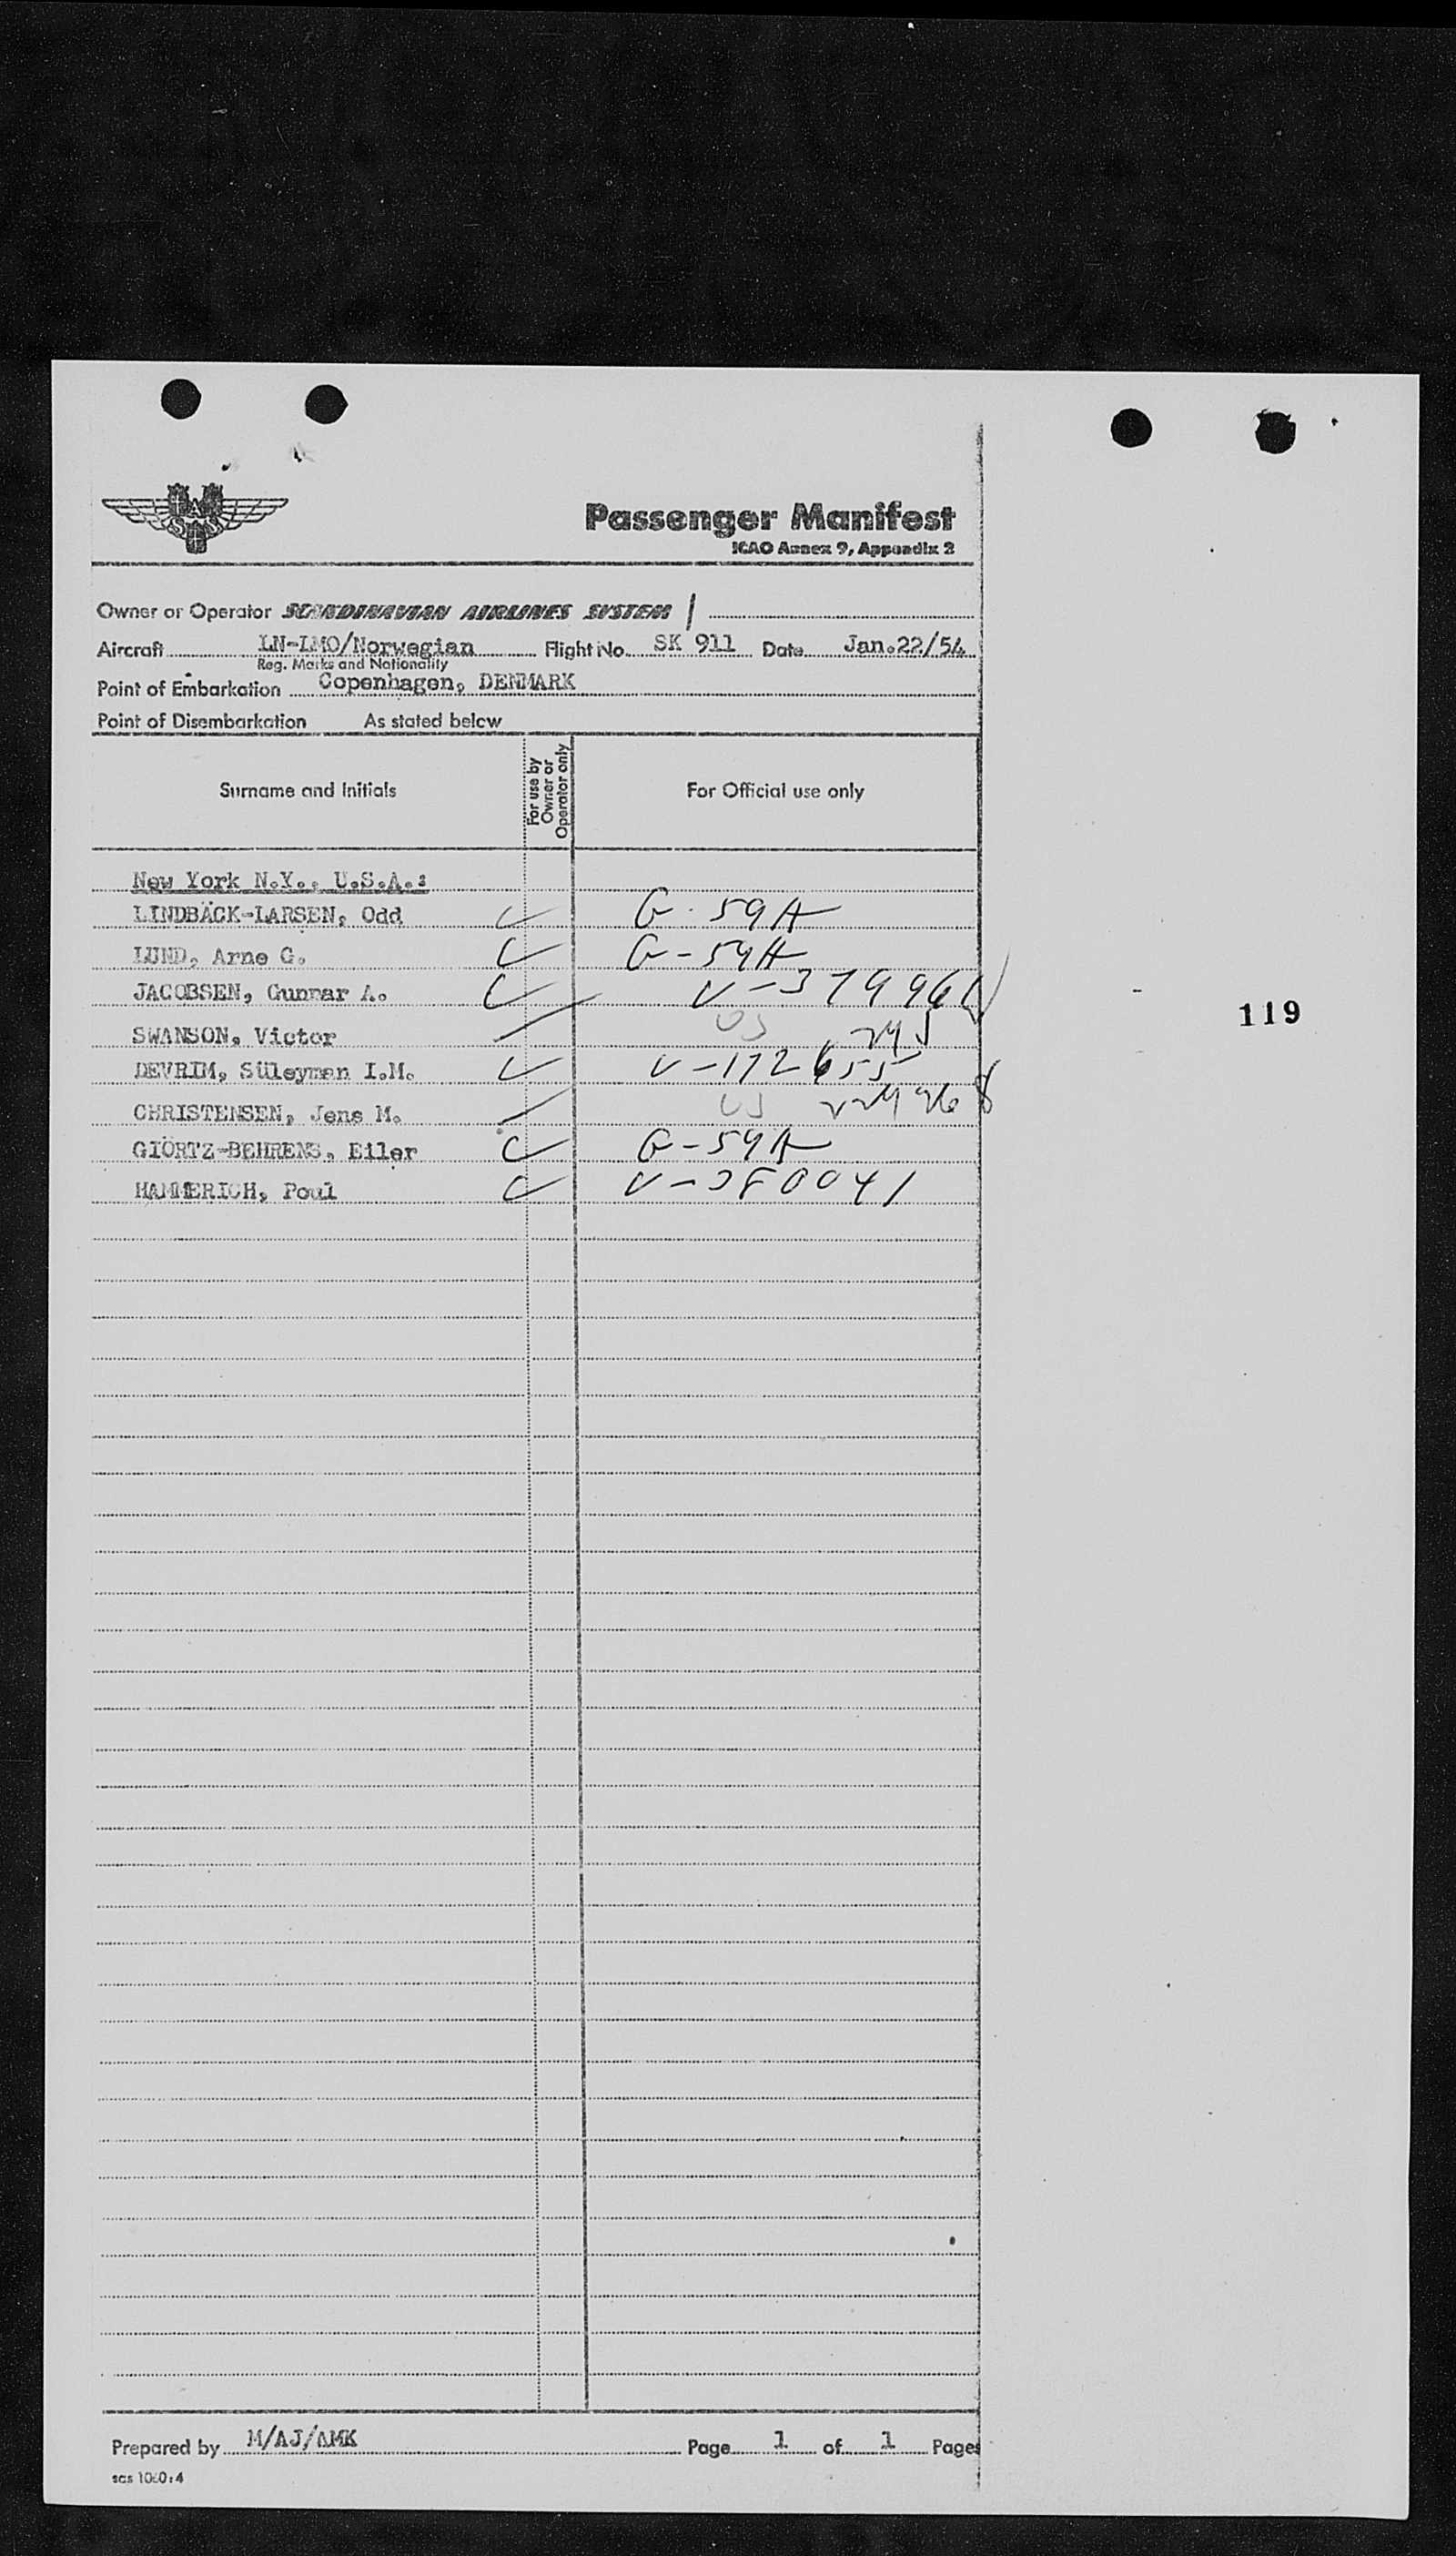 SAS
Passenger Manifest
ICAO Annex 9, Appendix 2
Owner or Operator SCANDINAVIAN AIRLINES SYSTEM /
Aircraft LN-LMO/Norwegian Flight No. SK 911 Date Jan.22/54
Reg. Marks and Nationality
Point of Embarkation Copenhagen, DENMARK
Point of Disembarkation As stated below
Surname and Initials For use by Owner or Operator only For Official use only
New York N.Y., U.S.A.:
LINDBÄCK-LARSEN, Odd G-59A
LUND, Arne G. G-59A
JACOBSEN, Gunnar A. V-379961
119
SWANSON, Victor US
DEVRIM, Süleyman I.M. V-172655
CHRISTENSEN, Jens M. US
GIÖRTZ-BEHRENS, Eiler G-59A
HAMMERICH, Poul
Prepared by M/AJ/AMK Page 1 of 1 Pages